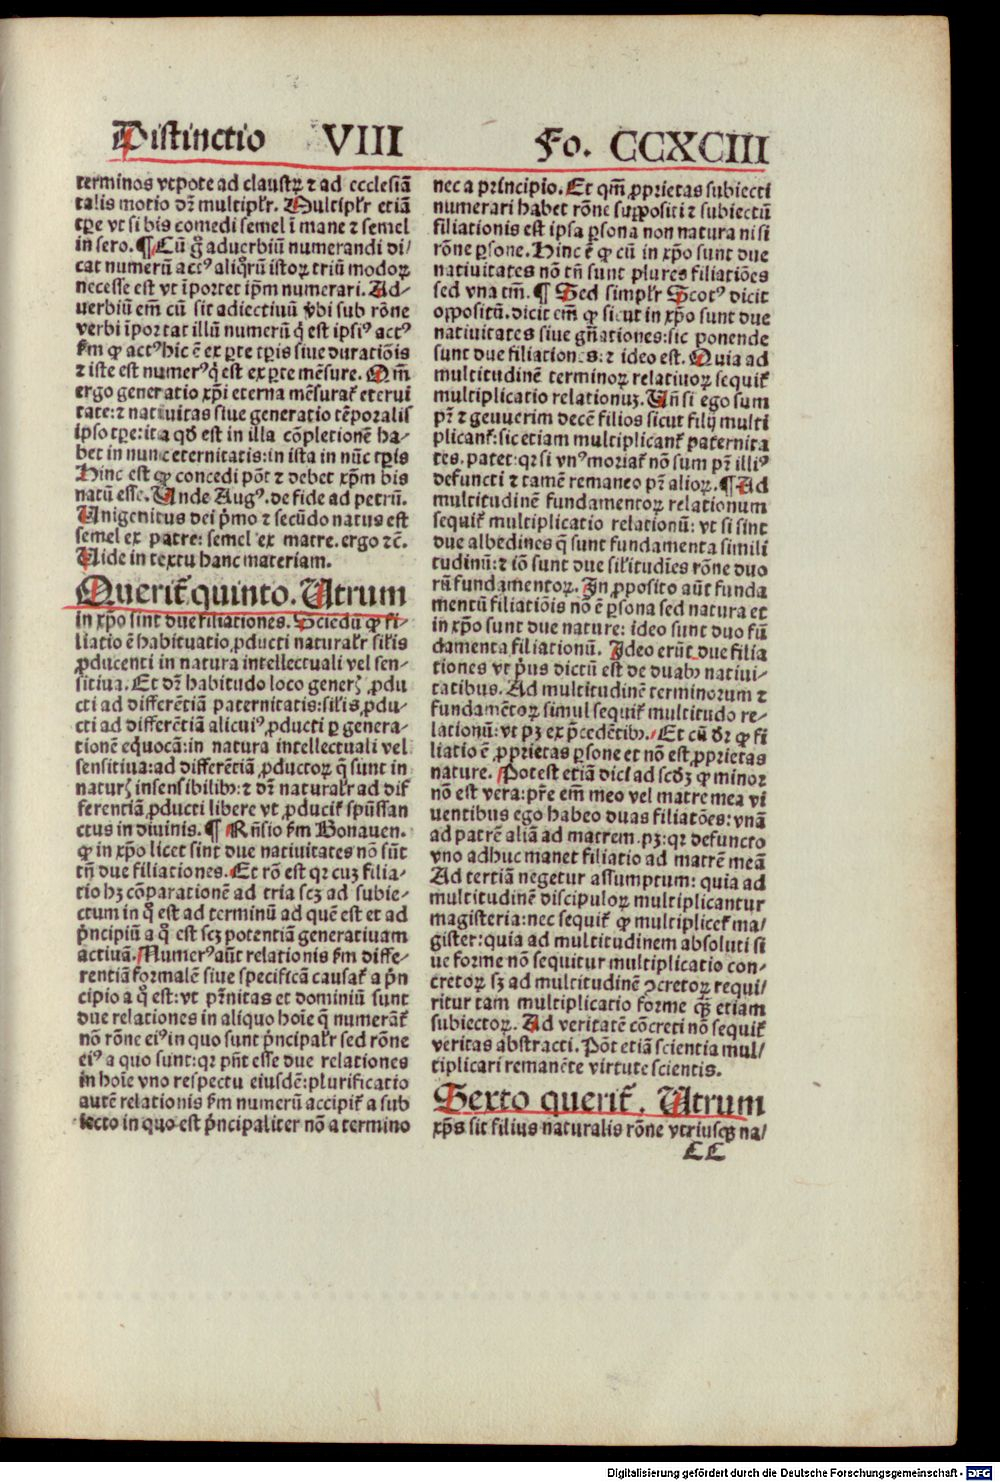 Distinctio VIII Fo. CCXCIII
terminos vtpote ad claustꝝ ⁊ ad ecclesiā
talis motio dr̄ multiplr̄. Multiplr̄ etiā
tꝑe vt si bis comedi semel ī mane ⁊ semel
in sero. ¶ Cū g̊ aduerbiū numerandi di/
cat numerū actꝰ aliqͦrū istoꝝ triū modoꝝ
necesse est vt īportet ip̄m numerari. Ad-
uerbiū em̄ cū sit adiectiuū v̄bi sub rōne
verbi īportat illū numerū q̇ est ipsiꝰ actꝰ
ẜm ꝙ actꝰ hic ē ex ꝑte tꝑis siue duratiōis
⁊ iste est numerꝰ q̇ est ex ꝑte mēsure. Qm̄
ergo generatio xp̄i eterna mēsurat̄ eterni
tate: ⁊ natiuitas siue generatio tēporalis
ipso tꝑe: ita qd̄ est in illa cōpletionē ha-
bet in nunc eternitatis: in ista in nūc tꝑis
Hinc est ꝙ concedi pōt ⁊ debet xp̄m bis
natū esse. Unde Augꝰ. de fide ad petrū.
Unigenitus dei p̄mo ⁊ secūdo natus est
semel ex patre: semel ex matre. ergo ⁊c̄.
Uide in textu hanc materiam.
Querit̄ quinto. Utrum
in xp̄o sint due filiationes. Sciedū ꝙ fi-
liatio ē habituatio ꝓducti naturalr̄ sil̄is
ꝓducenti in natura intellectuali vel sen-
sitiua. Et dr̄ habitudo loco gener̄ ꝓdu
cti ad differētiā paternitatis: sil̄is ꝓdu-
cti ad differētiā alicuiꝰ ꝓducti ꝑ genera-
tionē eq̇uocā: in natura intellectuali vel
sensitiua: ad differētiā ꝓductoꝝ q̄ sunt in
natur̄ insensibilibꝰ: ⁊ dr̄ naturalr̄ ad dif
ferentiā ꝓducti libere vt ꝓducit̄ spūssan
ctus in diuinis. ¶ Rn̄sio ẜm Bonauen.
ꝙ in xp̄o licet sint due natiuitates nō sūt
tn̄ due filiationes. Et rō est qr cuꝫ filia-
tio hꝫ cōparationē ad tria scꝫ ad subie-
ctum in q̊ est ad terminū ad quē est et ad
p̄ncipiū a q̊ est scꝫ potentiā generatiuam
actiuā. Numerꝰ aūt relationis ẜm diffe-
rentiā formalē siue specificā causat̄ a p̄n
cipio a q̊ est: vt pr̄nitas et dominiū sunt
due relationes in aliquo hoīe q̄ numerāt̄
nō rōne eiꝰ in quo sunt p̄ncipalr̄ sed rōne
eiꝰ a quo sunt: qr pn̄t esse due relationes
in hoīe vno respectu eiusdē: plurificatio
autē relationis ẜm numerū accipit̄ a sub
iecto in quo est p̄ncipaliter nō a termino
nec a principio. Et qm̄ ꝓprietas subiecti
numerari habet rōne suppositi ⁊ subiectū
filiationis est ipsa ꝑsona non natura nisi
rōne ꝑsone. Hinc ē ꝙ cū in xp̄o sunt due
natiuitates nō tn̄ sunt plures filiatiōes
sed vna tm̄. ¶ Sed simplr̄ Scotꝰ dicit
oppositū. dicit em̄ ꝙ sicut in xp̄o sunt due
natiuitates siue gn̄ationes: sic ponende
sunt due filiationes: ⁊ ideo est. Quia ad
multitudinē terminoꝝ relatiuoꝝ sequit̄
multiplicatio relationuꝫ. Un̄ si ego sum
pr̄ ⁊ genuerim decē filios sicut filij multi
plicant̄: sic etiam multiplicant̄ paternita
tes. patet: qr si vnꝰ moriat̄ nō sum pr̄ illiꝰ
defuncti ⁊ tamē remaneo pr̄ alioꝝ. ¶ Ad
multitudinē fundamentoꝝ relationum
sequit̄ multiplicatio relationū: vt si sint
due albedines q̄ sunt fundamenta simili
tudinū: ⁊ iō sunt due sil̄itudīes rōne duo
rū fundamentoꝝ. In ꝓposito aūt funda
mentū filiatiōis nō ē ꝑsona sed natura et
in xp̄o sunt due nature: ideo sunt duo fū
damenta filiationū. Ideo erūt due filia
tiones vt p̄us dictū est de duabꝰ natiui-
tatibus. Ad multitudinē terminorum ⁊
fundamētoꝝ simul sequit̄ multitudo re-
lationū: vt pꝫ ex p̄cedētibꝰ. Et cū dr̄ ꝙ fi
liatio ē ꝓprietas ꝑsone et nō est ꝓprietas
nature. Potest etiā dici ad scd̄ꝫ ꝙ minor
nō est vera: pr̄e em̄ meo vel matre mea vi
uentibus ego habeo duas filiatōes: vnā
ad patrē aliā ad matrem. pꝫ: qr defuncto
vno adhuc manet filiatio ad matrē meā
Ad tertiā negetur assumptum: quia ad
multitudinē discipuloꝝ multiplicantur
magisteria: nec sequit̄ ꝙ multiplicet̄ ma/
gister: quia ad multitudinem absoluti si
ue forme nō sequitur multiplicatio con-
cretoꝝ sꝫ ad multitudinē ꝯcretoꝝ requi/
ritur tam multiplicatio forme qꝫ̄ etiam
subiectoꝝ. Ad veritatē cōcreti nō sequit̄
veritas abstracti. Pōt etiā scientia mul/
tiplicari remanēte virtute scientis.
Sexto querit̄. Utrum
xp̄s sit filius naturalis rōne vtriusqꝫ na/
CC
Digitalisierung gefördert durch die Deutsche Forschungsgemeinschaft - DFG